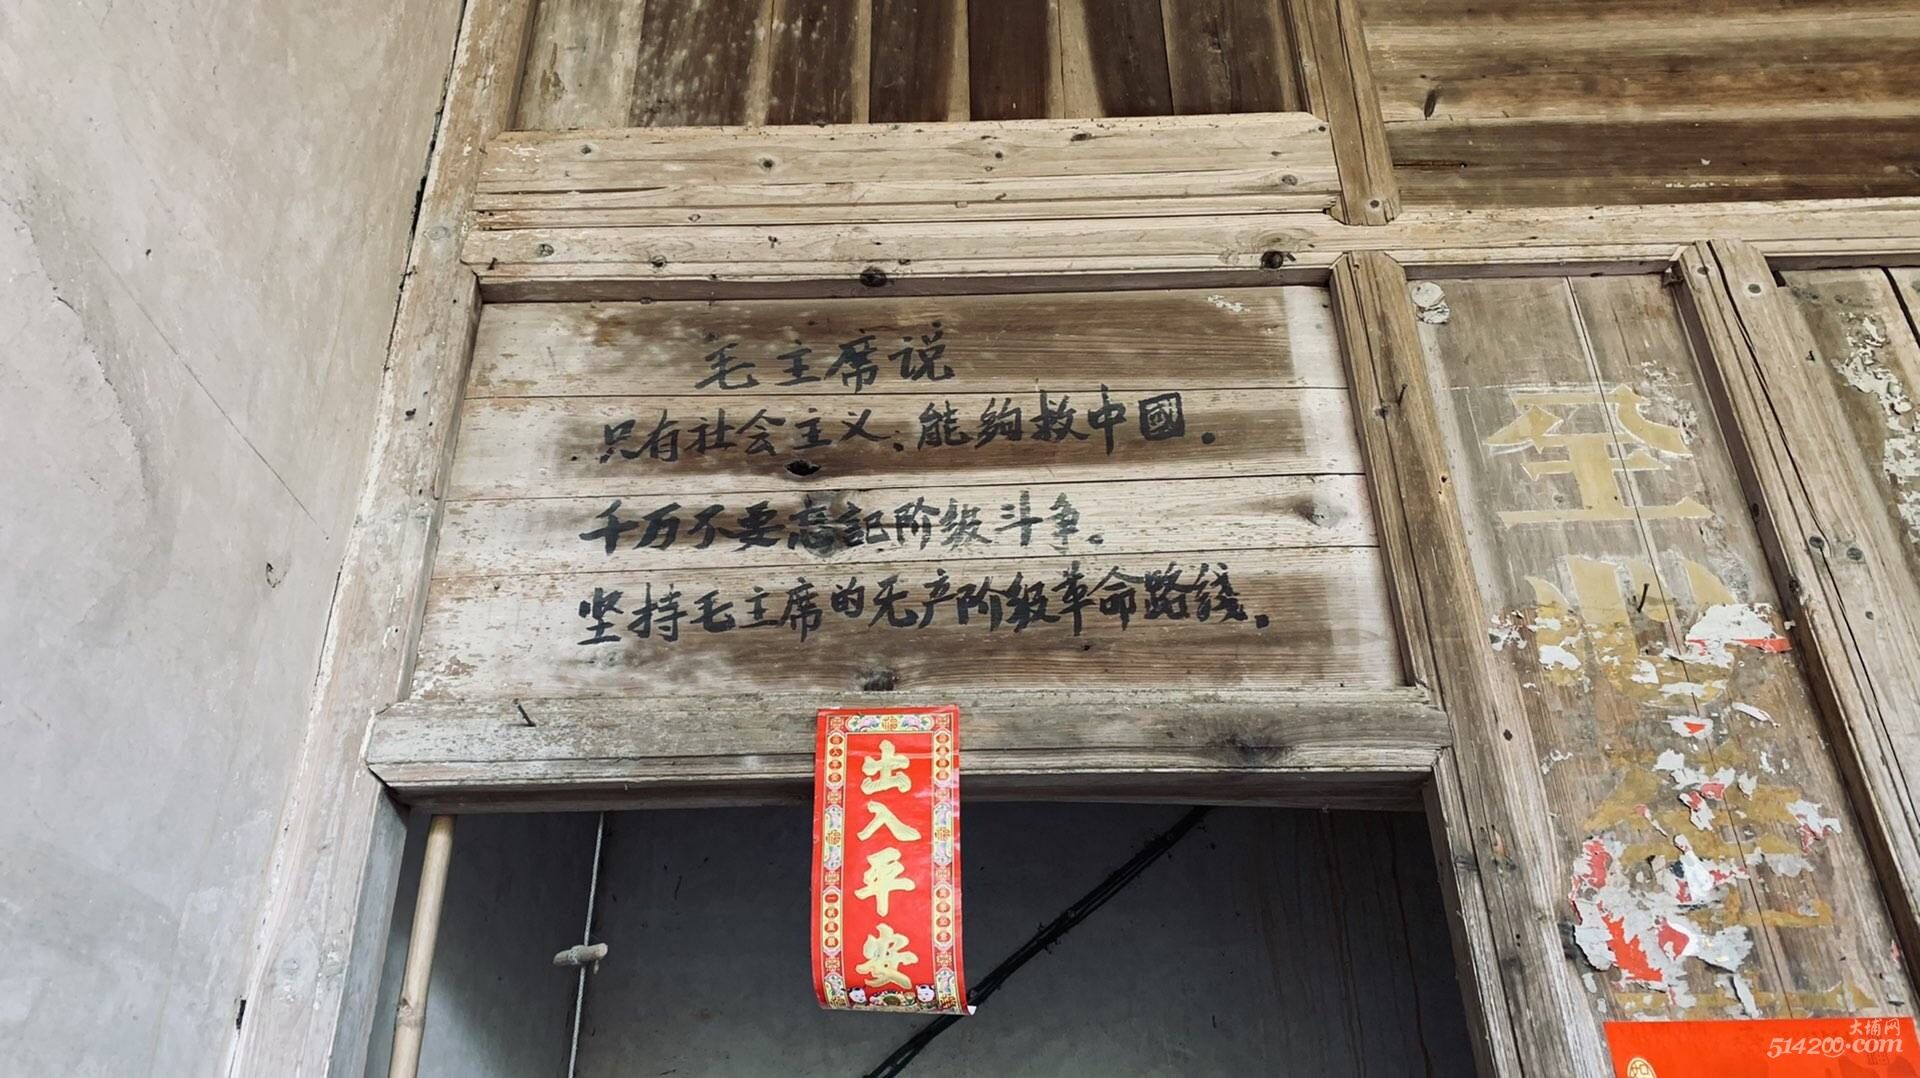 毛主席说
只有社会主义、能够救中國.
千万不要忘記阶级斗争.
坚持毛主席的无产阶级革命路綫.
出入平安
大埔网
514200.com